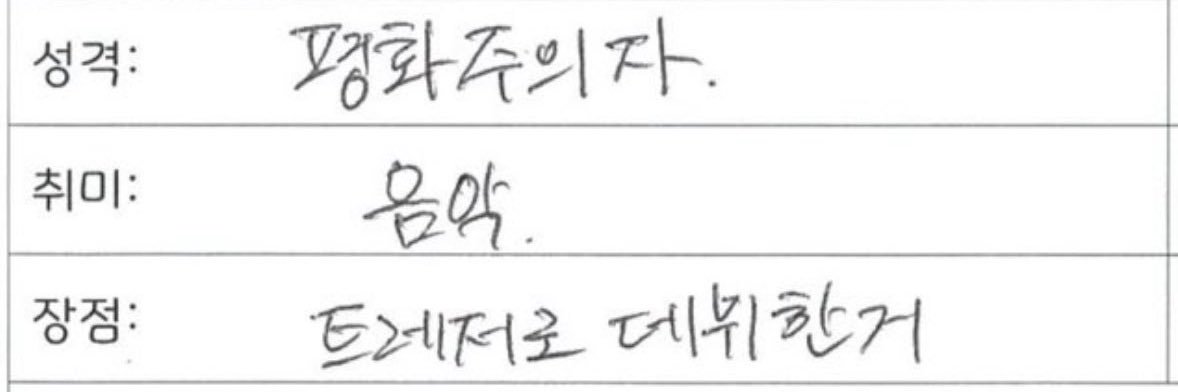 성격: 평화주의자.
취미: 음악.
장점: 트레저로 데뷔한거